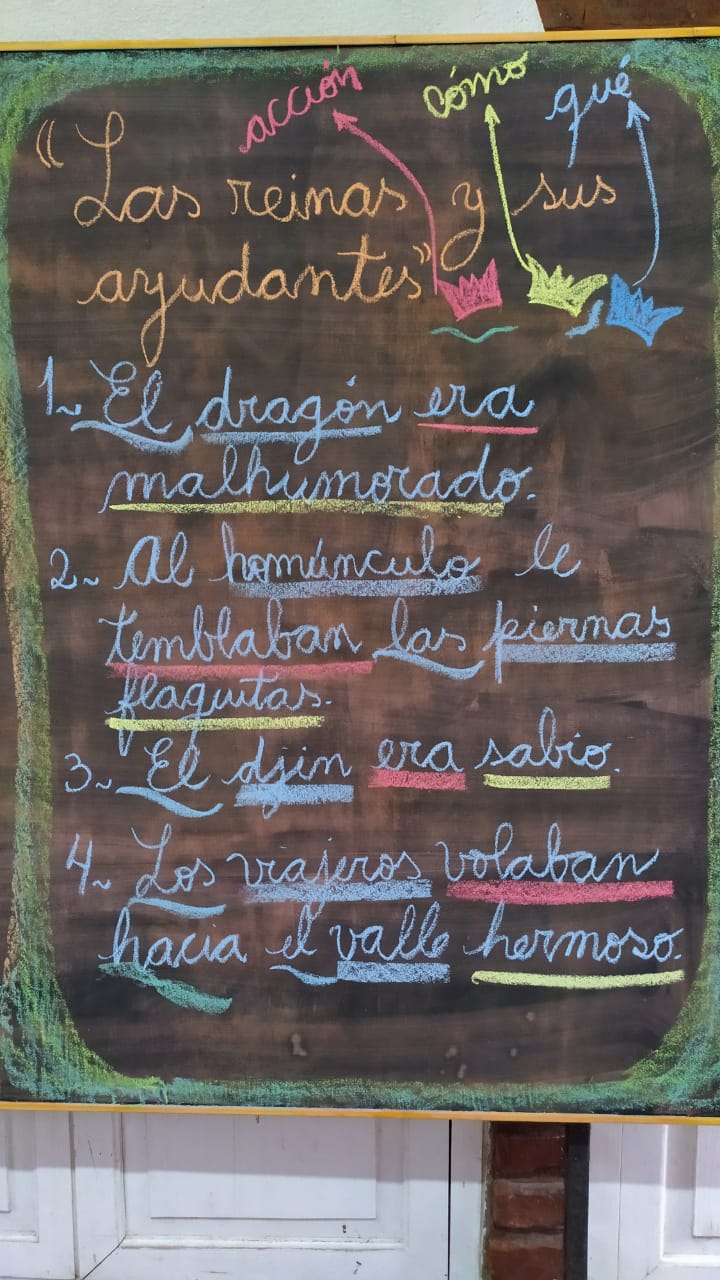 acción cómo qué
“Las reinas y sus
ayudantes”
1~ El dragón era
malhumorado.
2~ Al homúnculo le
temblaban las piernas
flaquitas.
3~ El djin era sabio.
4~ Los viajeros volaban
hacia el valle hermoso.